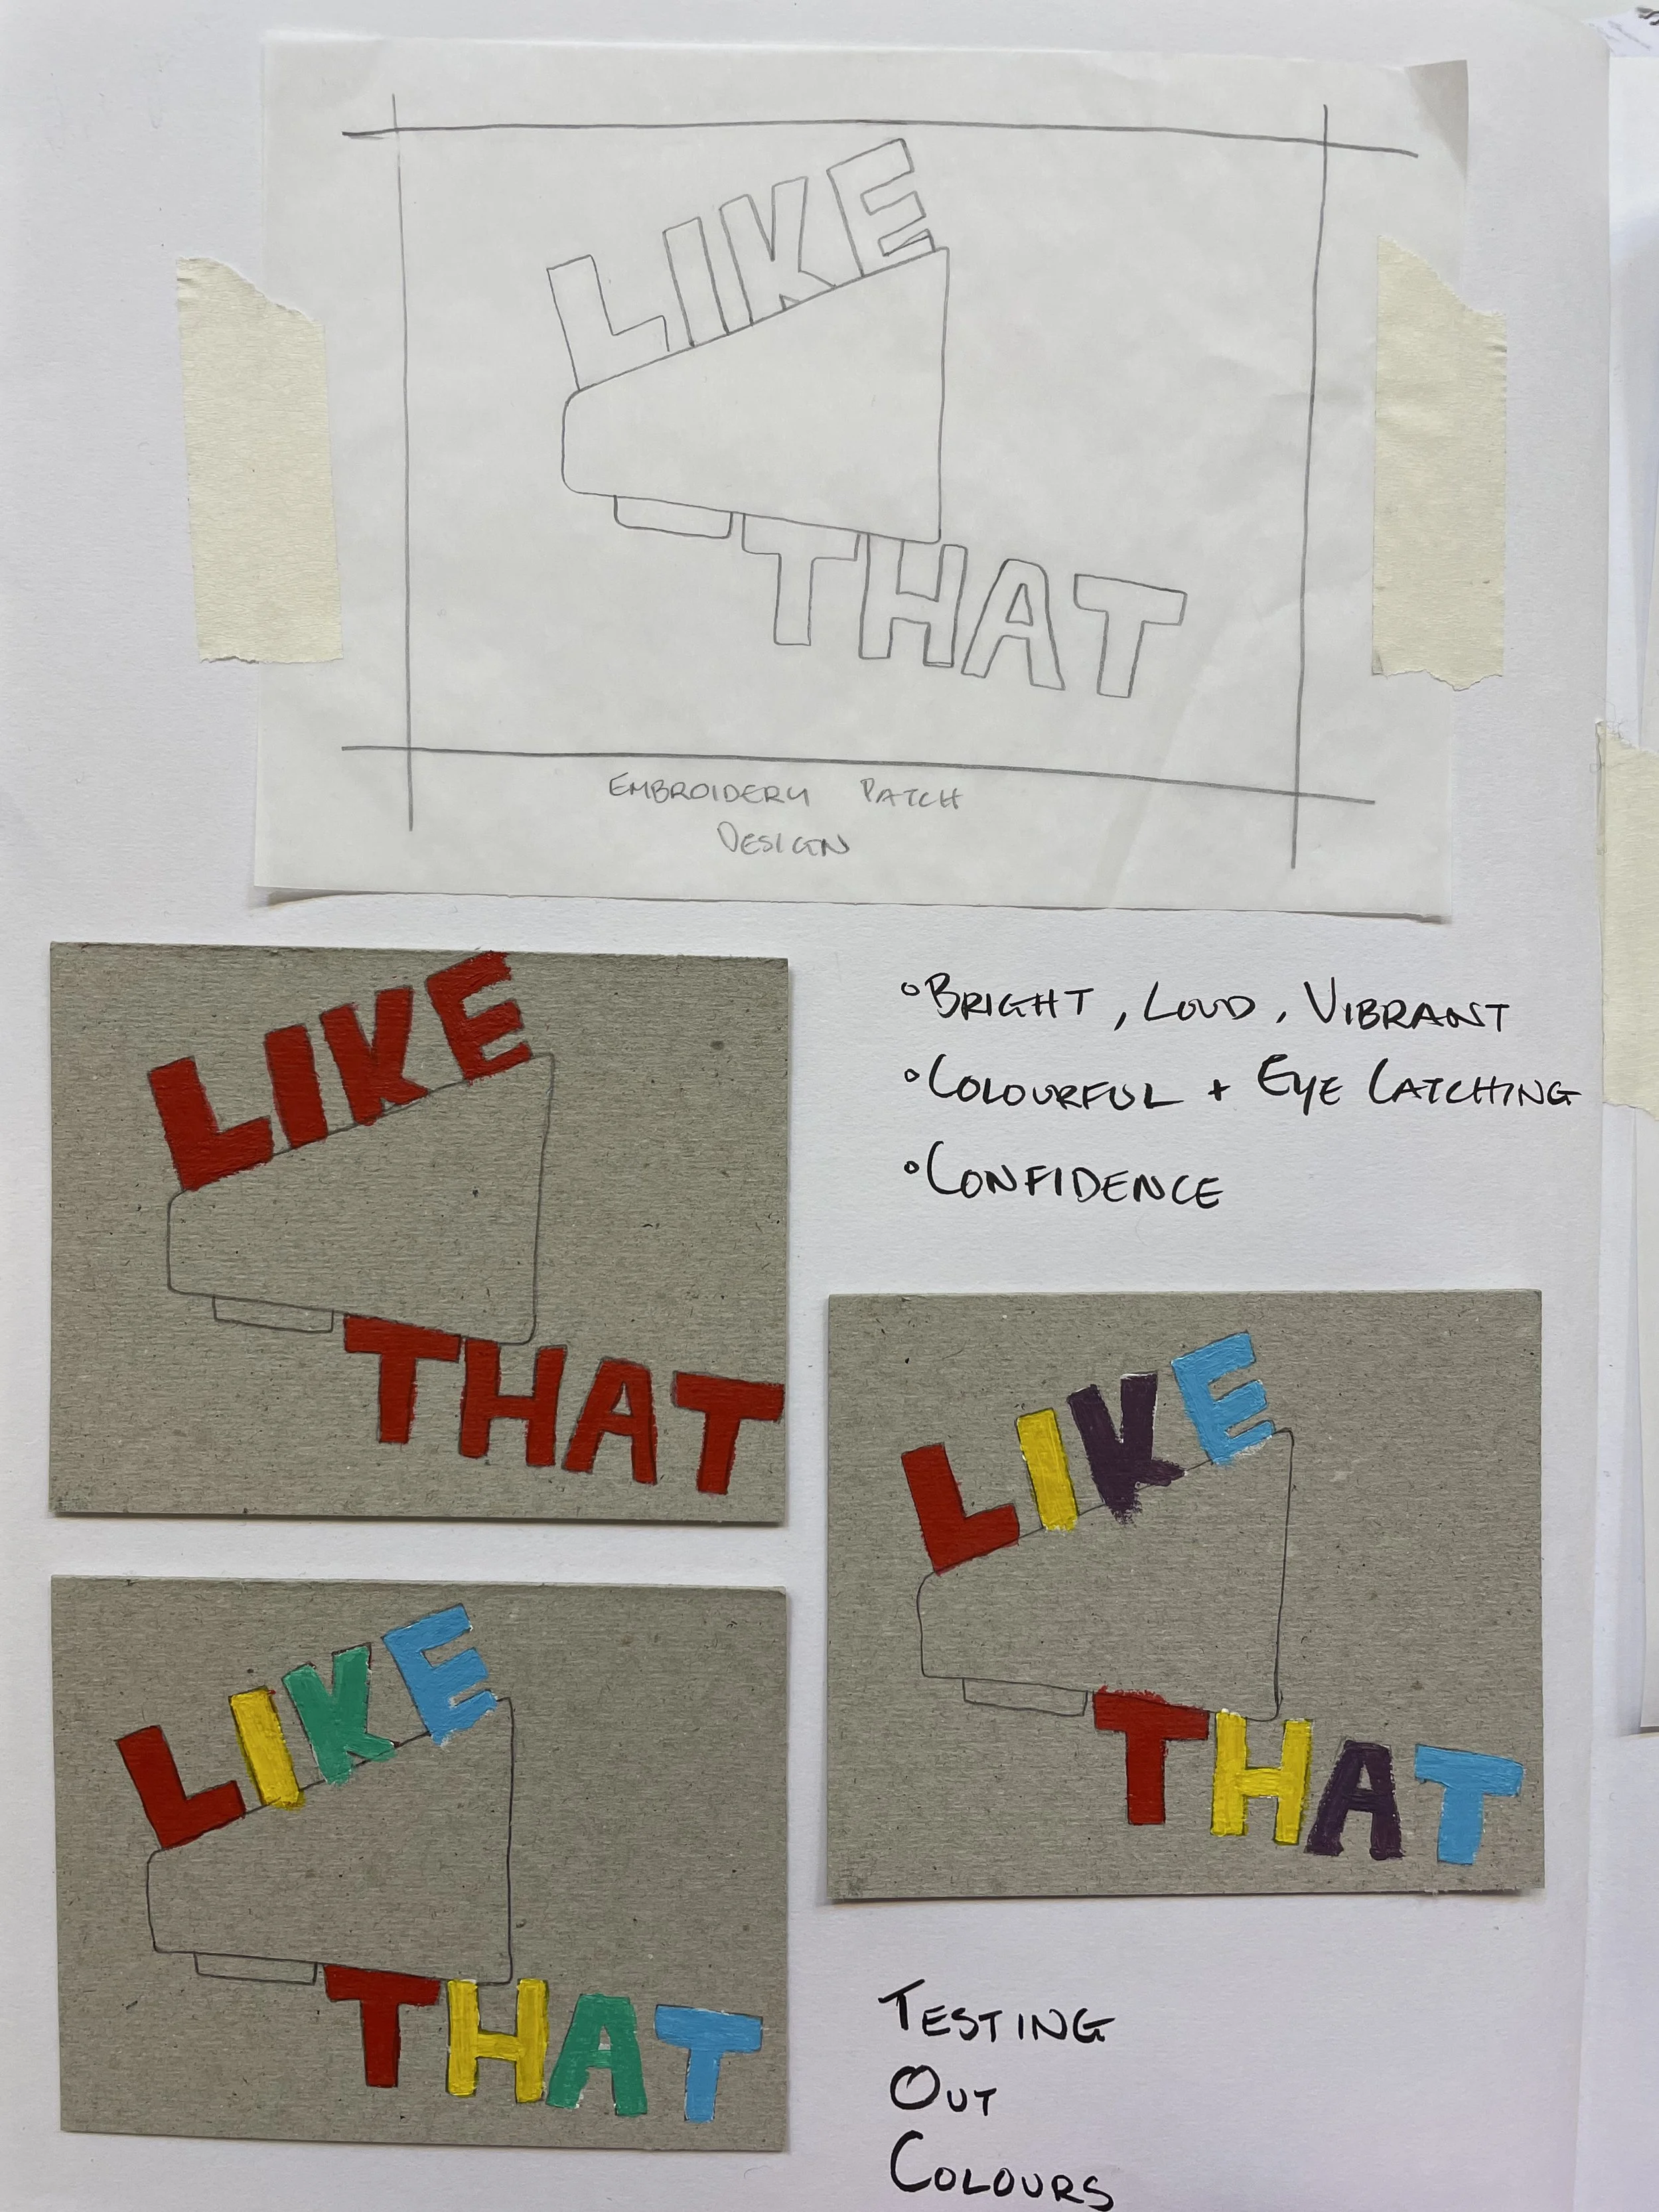 LIKE
THAT
EMBROIDERY PATCH
DESIGN
LIKE
THAT
• BRIGHT, LOUD, VIBRANT
• COLOURFUL + EYE CATCHING
• CONFIDENCE
LIKE
THAT
LIKE
THAT
TESTING
OUT
COLOURS